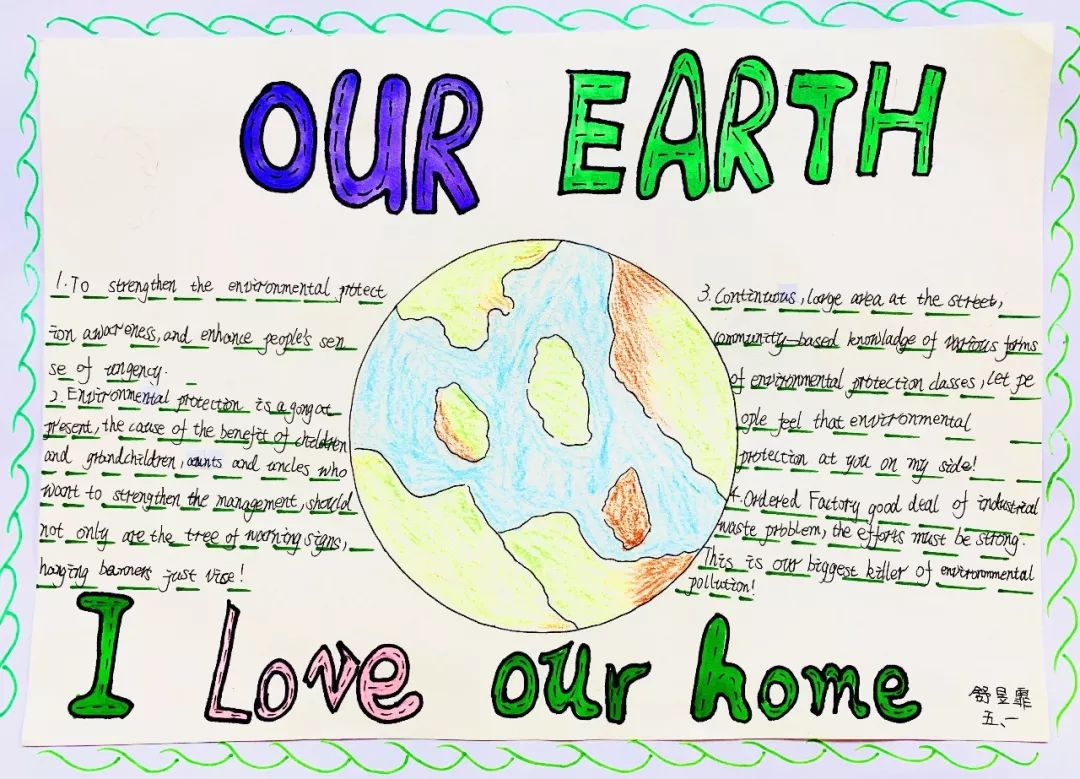 OUR EARTH
1. To strengthen the environmental protect
ion awareness, and enhance people's sen
se of urgency.
2. Environmental protection is a gong at
present, the cause of the benefit of children
and grandchildren, aunts and uncles who
want to strengthen the management, should
not only are the tree of warning signs,
hanging banners just vise!
3. Continuous, large area at the street,
community-based knowladge of various forms
of environmental protection classes, let pe
ople feel that environmental
protection at you on my side!
4. Ordered Factory good deal of industrial
waste problem, the efforts must be strong.
This is our biggest killer of environmental
pollution!
I Love our home
舒昱霏
五、一